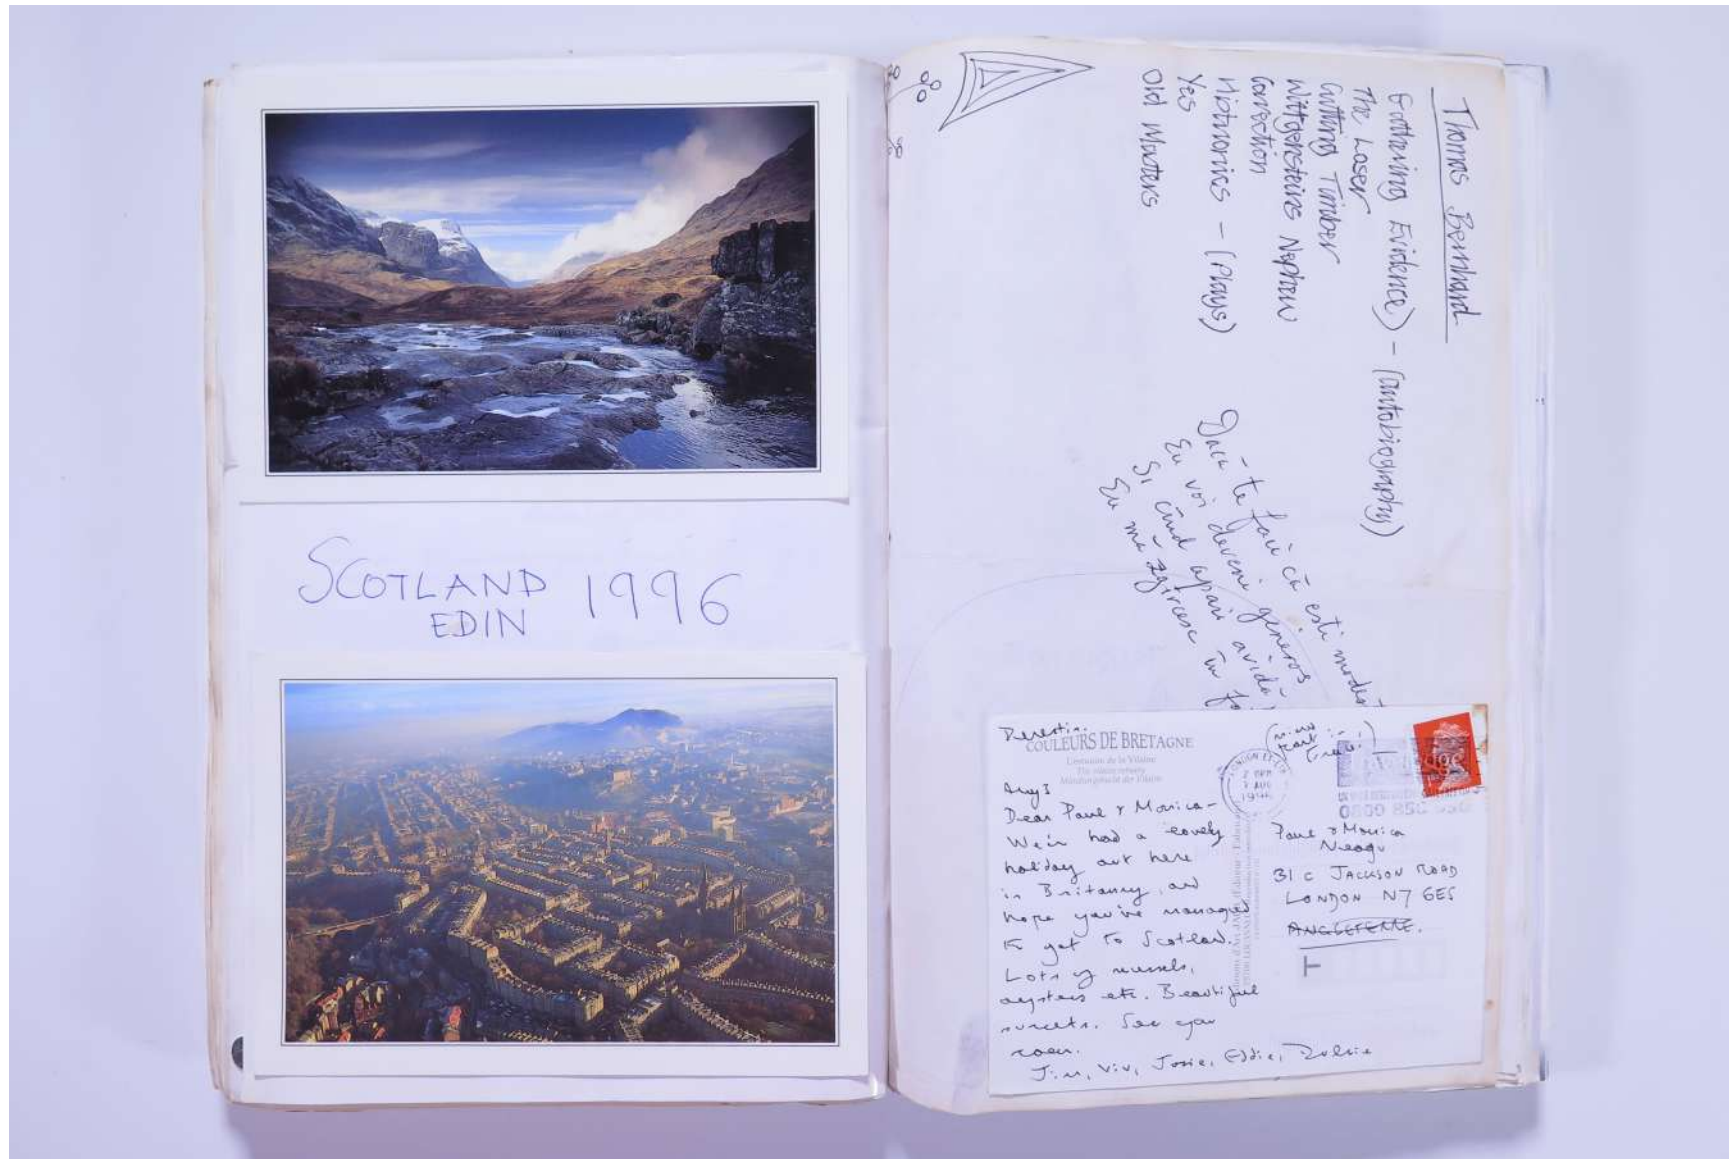 SCOTLAND 1996
EDIN
Thomas Bernhard
Gathering Evidence) - (autobiography)
The Loser
Cutting Timber
Wittgensteins Nephew
Correction
Histrionics - (Plays)
Yes
Old Masters
Dacă te faci că esti modest
Eu voi deveni generos
Si cînd apari avidă
Eu mă zgîrcesc în
COULEURS DE BRETAGNE
L'estuaire de la Vilaine
The vilaine estuary
Mündungsgebiet der Vilaine
Aug 3
Dear Paul & Monica -
We've had a lovely
holiday out here
in Brittany, and
hope you've managed
to get to Scotland.
Lots of mussels,
oysters etc. Beautiful
sunsets. See you
soon.
Jim, Viv, Josie, Eddie,
LONDON
AUG
1996
0800
Paul & Monica
Neagu
31 C JACKSON ROAD
LONDON N7 6ES
ANGLETERRE.